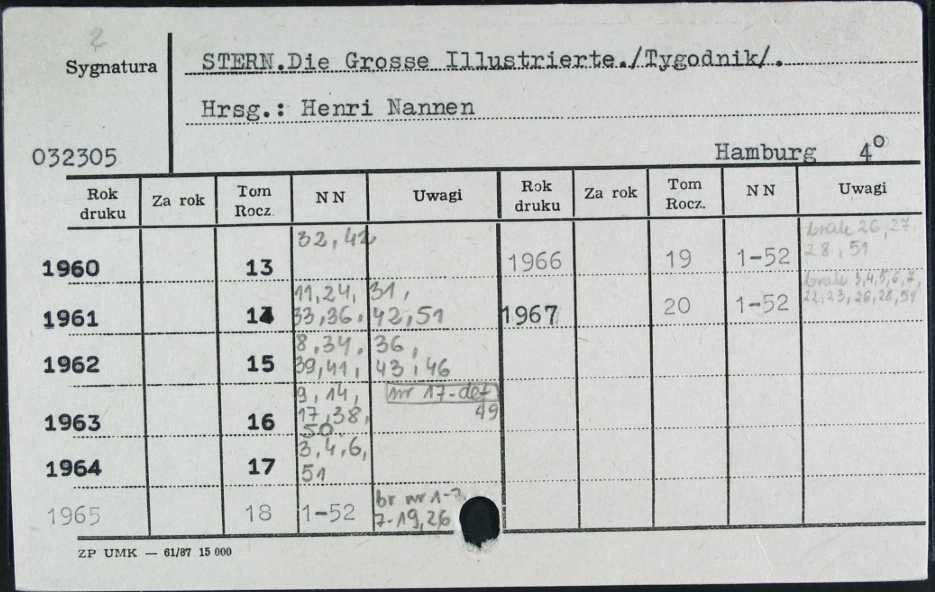 2
Sygnatura
STERN.Die Grosse Illustrierte./Tygodnik/.
Hrsg.: Henri Nannen
032305
Hamburg 4°
Rok druku Za rok Tom Rocz. NN Uwagi Rok druku Za rok Tom Rocz. NN Uwagi
1960 13 32, 42 1966 19 1-52 brak 26, 27, 28, 51
1961 14 11, 24, 31, 33, 36, 42, 51 1967 20 1-52 brak 3,4,5,6,7, 22,23,26,28,51
1962 15 8, 34, 36, 39, 41, 43, 46
1963 16 9, 14, 17, 38, 50 nr 17-def 49
1964 17 3, 4, 6, 51
1965 18 1-52 br nr 7-19, 26
ZP UMK — 61/87 15 000